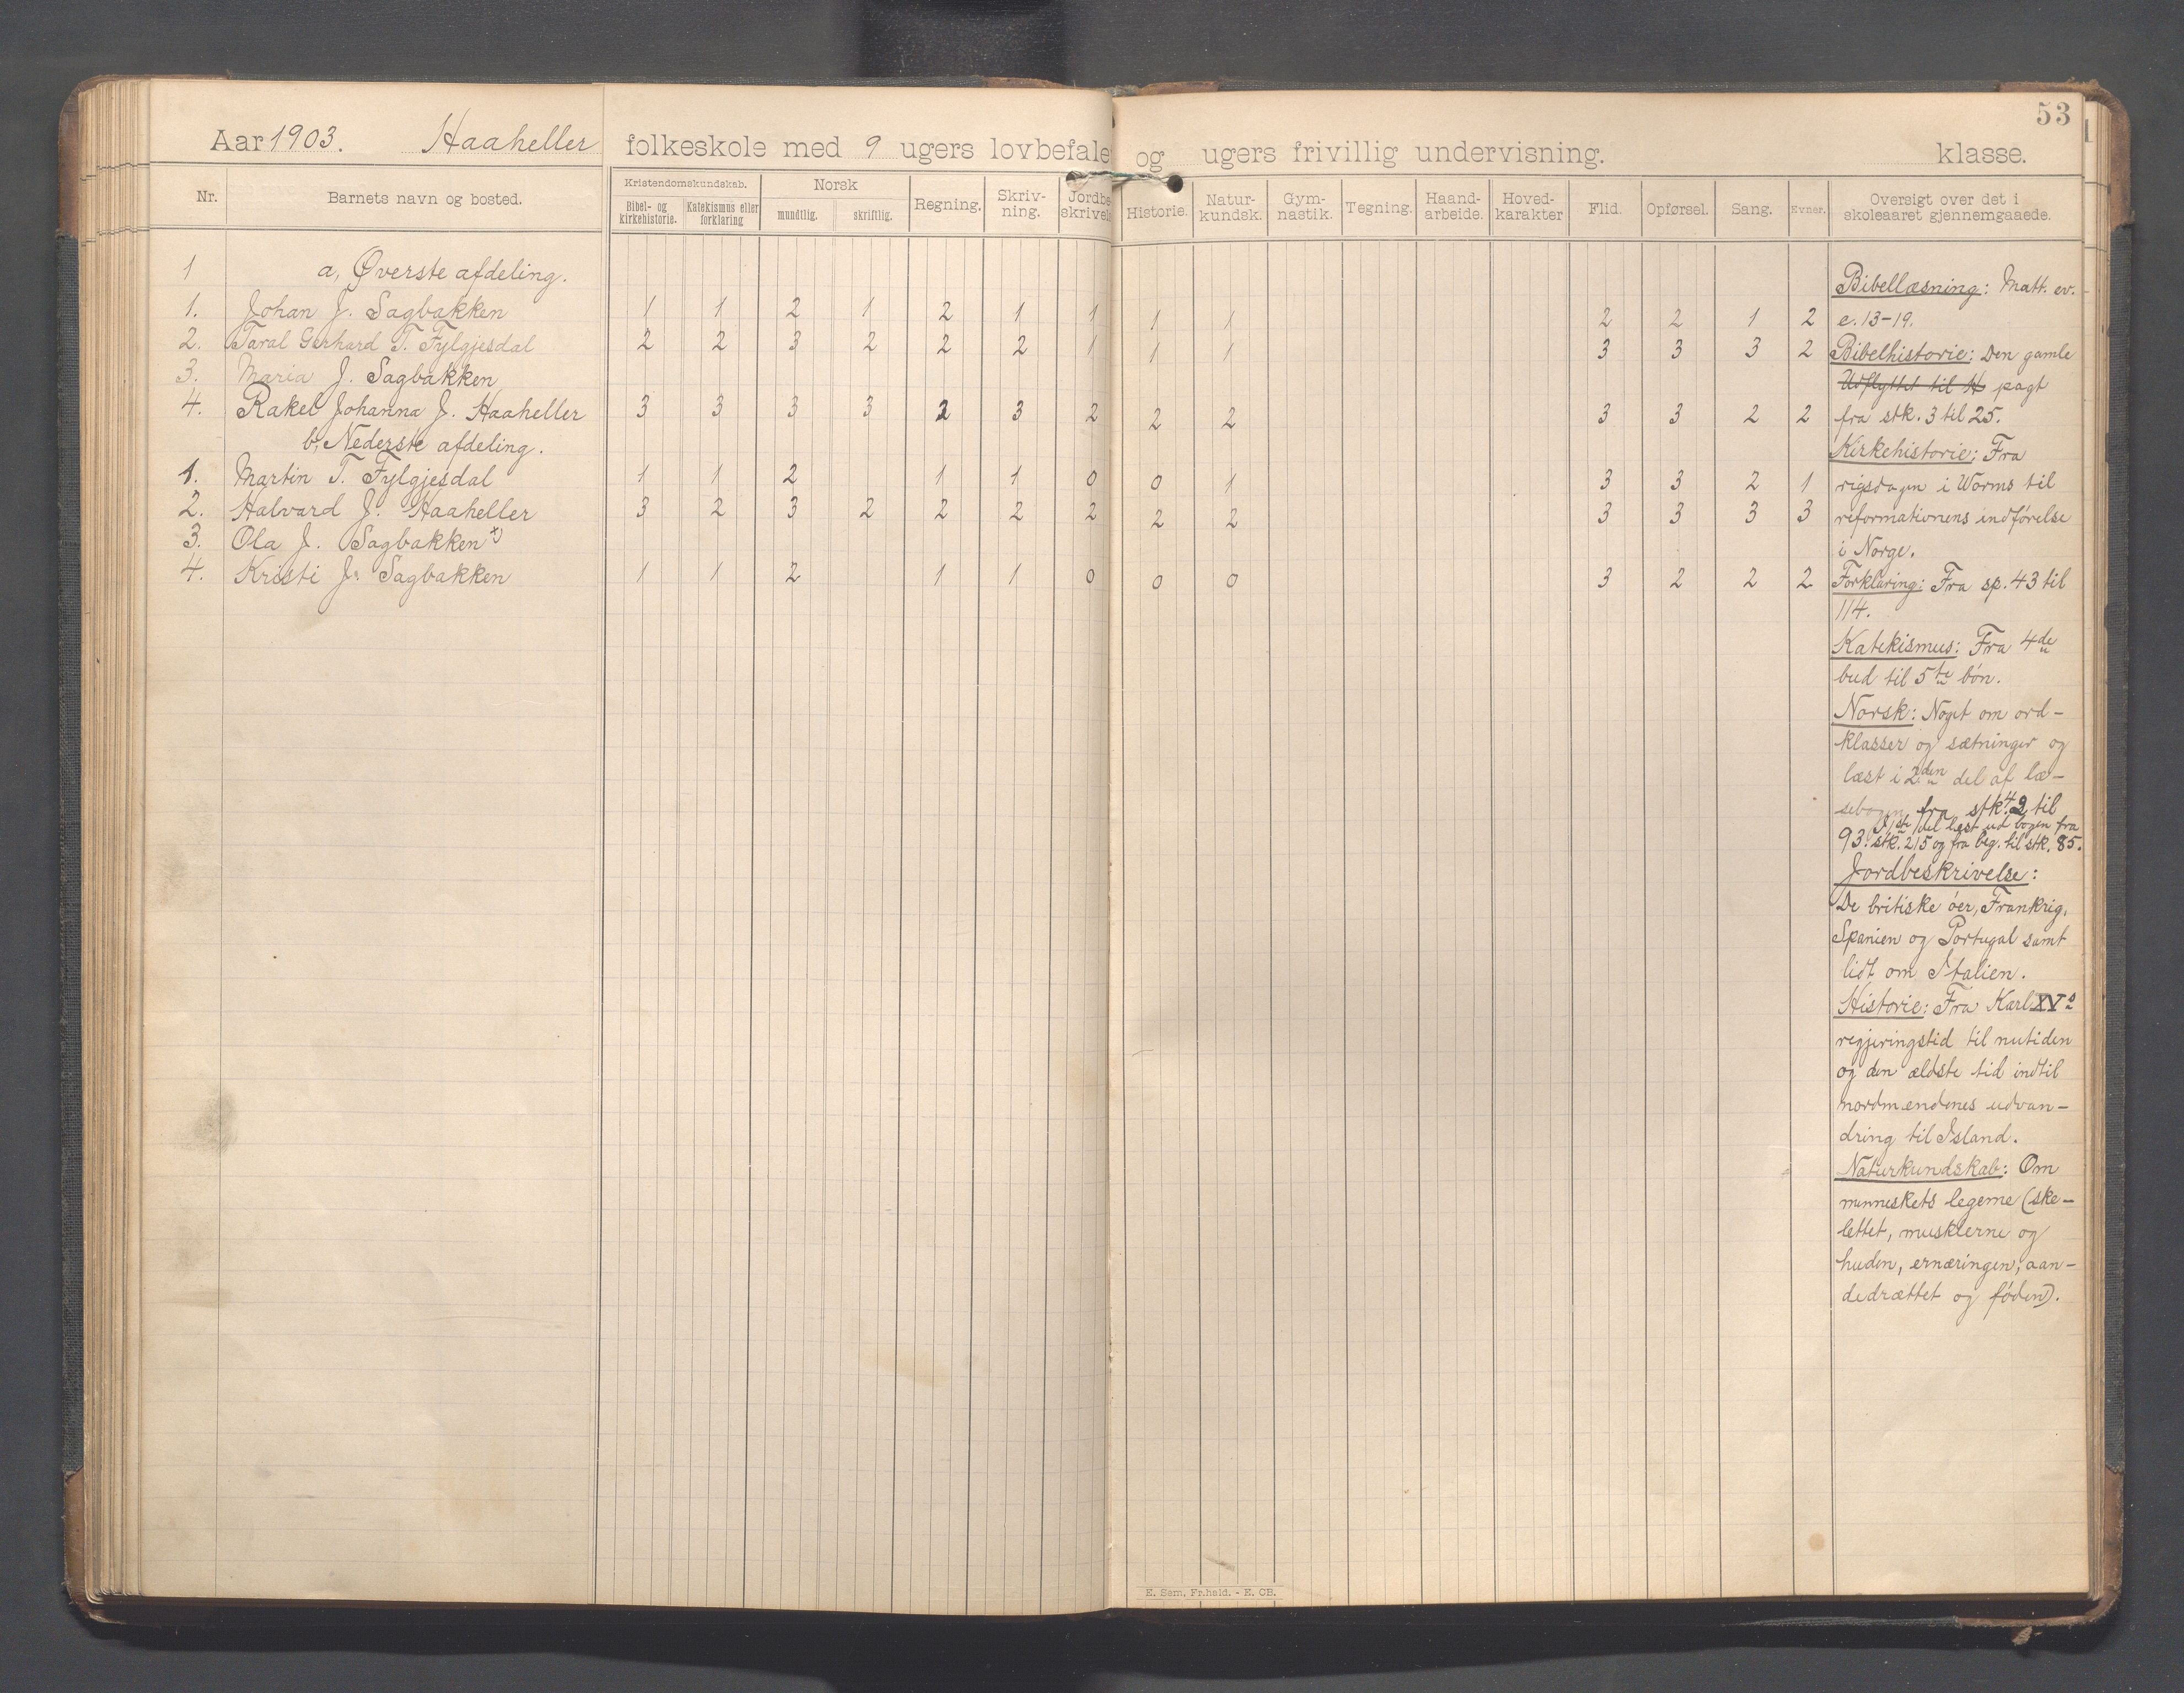 53
Aar 1903. Haaheller folkeskole med 9 ugers lovbefale og ugers frivillig undervisning. klasse.
Nr. Barnets navn og bosted. Kristendomskundskab. Bibel- og kirkehistorie. Katekismus eller forklaring Norsk mundtlig. skriftlig. Regning. Skriv-ning. Jordbe skrivels Historie. Natur-kundsk. Gym-nastik. Tegning. Haand-arbeide. Hoved-karakter Flid. Opførsel. Sang. Evner. Oversigt over det i skoleaaret gjennemgaaede.
1 a, Øverste afdeling.
1. Johan J. Sagbakken 1 1 2 1 2 1 1 1 1 2 2 1 2
2. Taral Gerhard T. Fylgjesdal 2 2 3 2 2 2 1 1 1 3 3 3 2
3. Maria J. Sagbakken
4. Rakel Johanna J. Haaheller 3 3 3 3 2 3 2 2 2 3 3 2 2
b, Nederste afdeling.
1. Martin T. Fylgjesdal 1 1 2 1 1 0 0 1 3 3 2 1
2. Halvard J. Haaheller 3 2 3 2 2 2 2 2 2 3 3 3 3
3. Ola J. Sagbakken x)
4. Kristi J. Sagbakken 1 1 2 1 1 0 0 0 3 2 2 2
Bibellæsning: Matt. ev.
c. 13-19.
Bibelhistorie: Den gamle
Udflyttet til H pagt
fra stk. 3 til 25.
Kirkehistorie: Fra
rigsdagen i Worms til
reformationens indførelse
i Norge.
Forklaring: Fra sp. 43 til
114.
Katekismus: Fra 4de
bud til 5te bøn.
Norsk: Noget om ord-
klasser og sætninger og
læst i 2den del af læ-
sebogen fra stk. 42 til
93. I 1ste del læst ud bogen fra
stk. 215 og fra beg. til stk. 85.
Jordbeskrivelse:
De britiske øer, Frankrig,
Spanien og Portugal samt
lidt om Italien.
Historie: Fra Karl XVs
regjeringstid til nutiden
og den ældste tid indtil
nordmændenes udvan-
dring til Island.
Naturkundskab: Om
menneskets legeme (ske-
lettet, musklerne og
huden, ernæringen, aan-
dedrættet og føden).
E. Sem, Fr.hald. - E. CB.